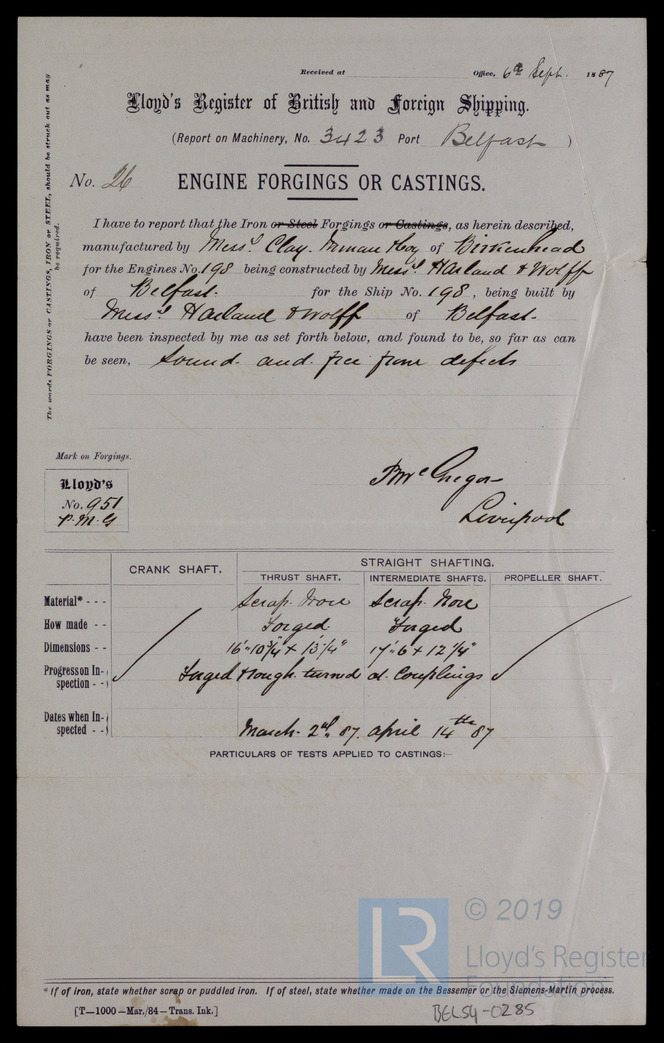 Received at Office, 6th Sept. 1887
Lloyd's Register of British and Foreign Shipping.
(Report on Machinery, No. 3423 Port Belfast )
No. 26 ENGINE FORGINGS OR CASTINGS.
I have to report that the Iron or Steel Forgings or Castings, as herein described,
manufactured by Messrs Clay. Inman & Coy of Birkenhead
for the Engines No. 198 being constructed by Messrs Harland & Wolff
of Belfast. for the Ship No. 198, being built by
Messrs Harland & Wolff of Belfast.
have been inspected by me as set forth below, and found to be, so far as can
be seen, Sound and free from defects
The words FORGINGS or CASTINGS, IRON or STEEL, should be struck out as may
be required.
Mark on Forgings.
Lloyd's
No. 951
P.McG
P McGregor
Liverpool
CRANK SHAFT. STRAIGHT SHAFTING.
THRUST SHAFT. INTERMEDIATE SHAFTS. PROPELLER SHAFT.
Material* - - - Scrap Iron Scrap Iron
How made - - Forged Forged
Dimensions - - 16'-10¾" + 13¼" 17'-6 + 12¼"
Progress on In-
spection - - Forged & rough turned at Couplings
Dates when In-
spected - - March 2nd 87. April 14th 87
PARTICULARS OF TESTS APPLIED TO CASTINGS:—
© 2019
Lloyd's Register
Foundation
* If of iron, state whether scrap or puddled iron. If of steel, state whether made on the Bessemer or the Siemens-Martin process.
[T—1000—Mar./84—Trans. Ink.]
BELS4-0285